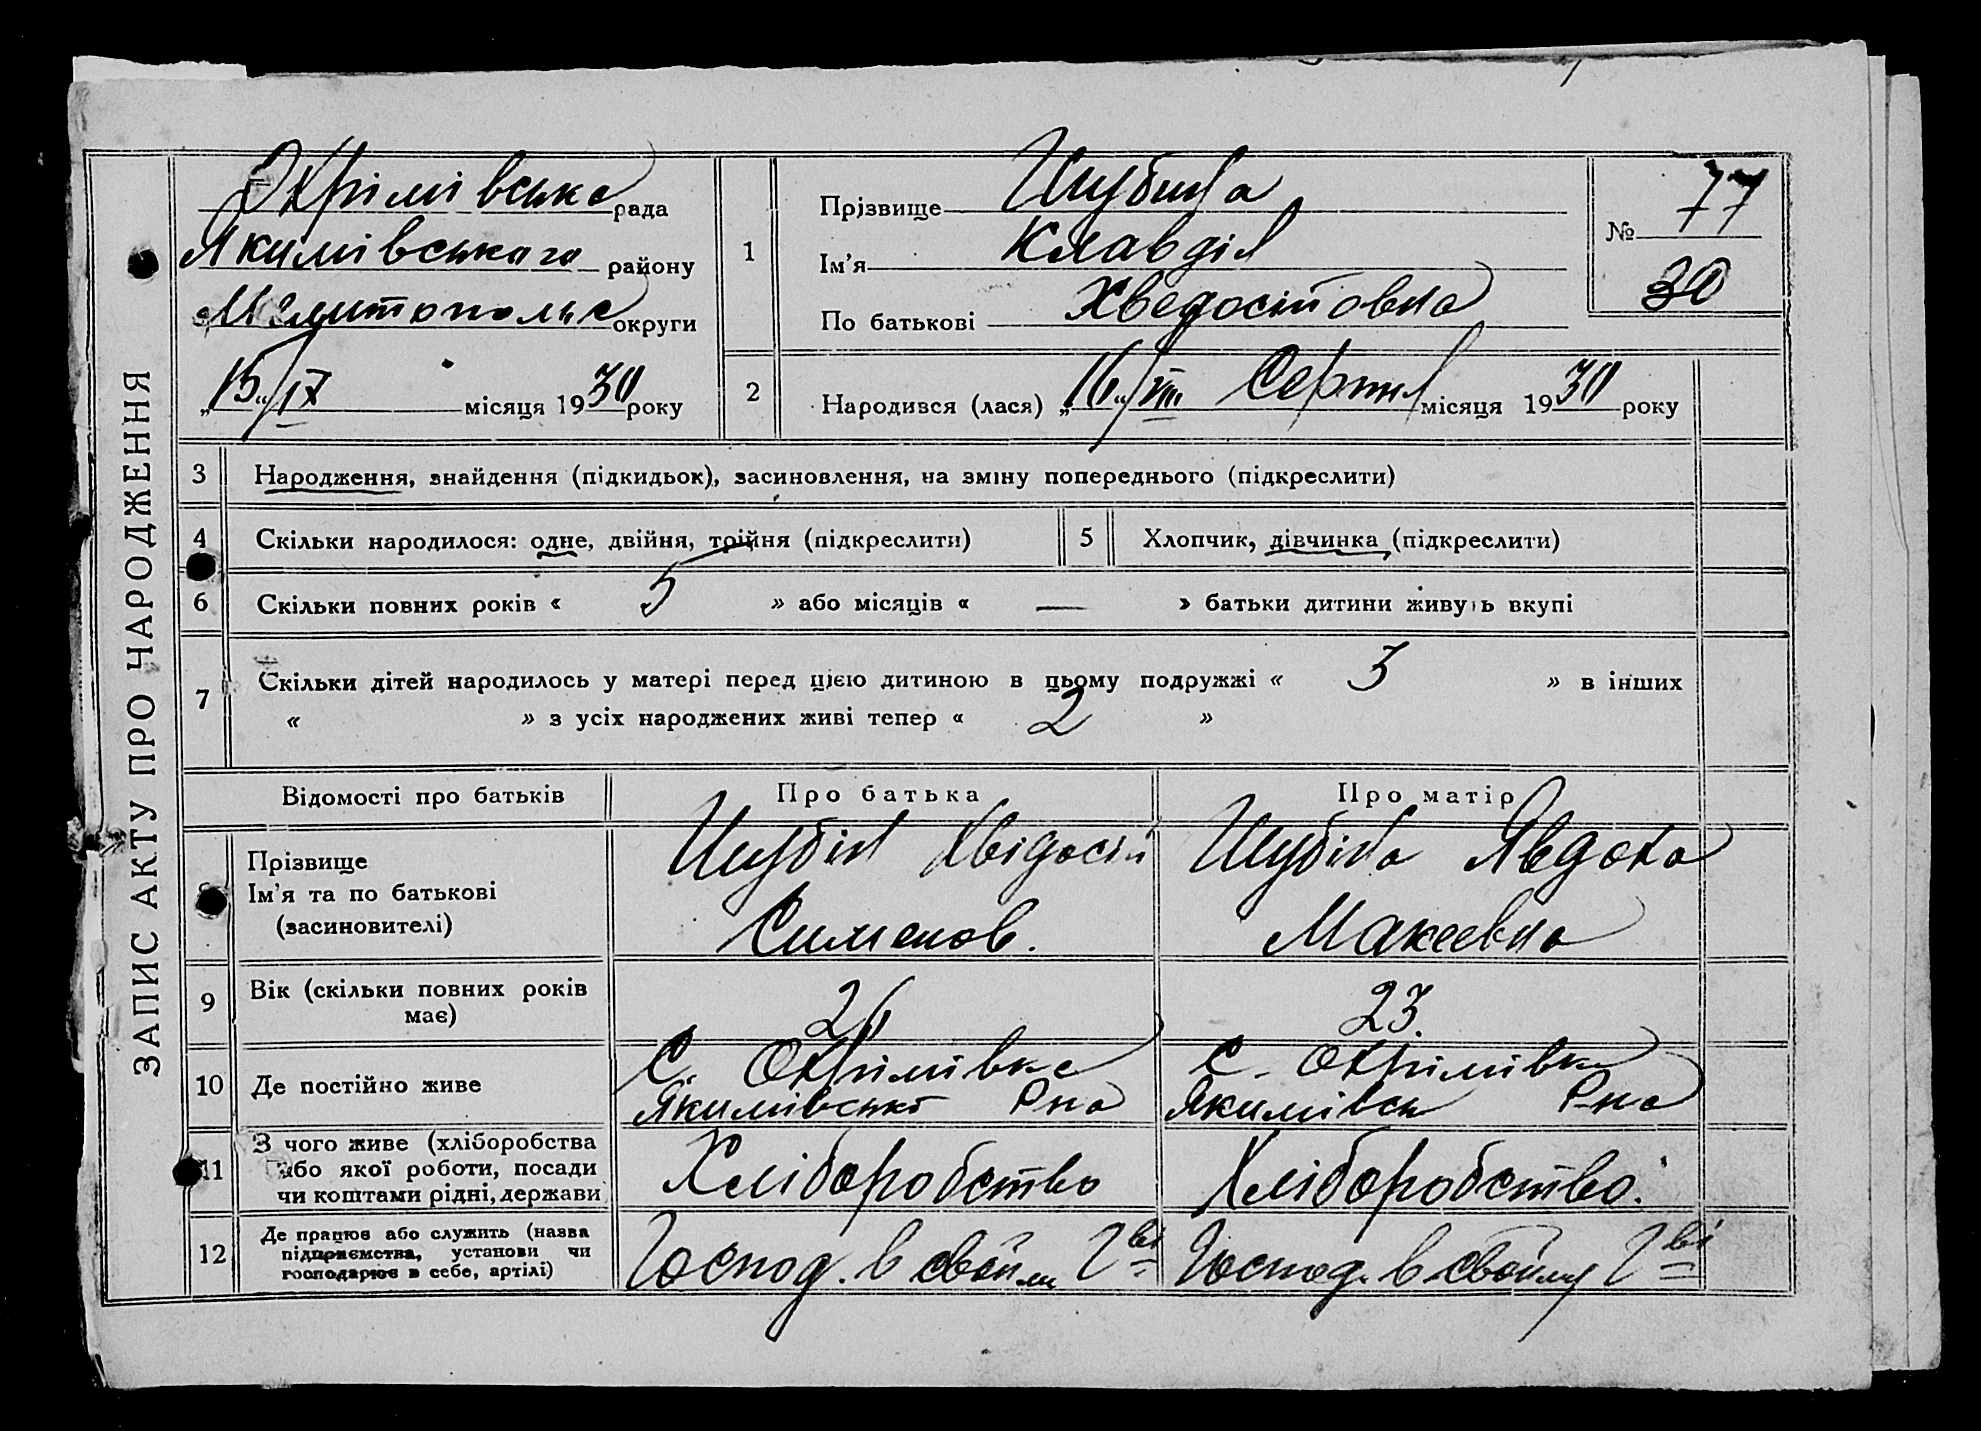 ЗАПИС АКТУ ПРО НАРОДЖЕННЯ
Охрімівська рада
Якимівського району
Мелитопольс округи
„15“/IX місяця 1930 року
1
Прізвище Шубина
Ім'я Клавдія
По батькові Хведосійовна
№ 77
30
2 Народився (лася) „16“/VIII Серпня місяця 1930 року
3 Народження, знайдення (підкидьок), засиновлення, на зміну попереднього (підкреслити)
4 Скільки народилося: одне, двійня, трійня (підкреслити) 5 Хлопчик, дівчинка (підкреслити)
6 Скільки повних років « 5 » або місяців « — » батьки дитини живуть вкупі
7 Скільки дітей народилось у матері перед цією дитиною в цьому подружжі « 3 » в інших
« » з усіх народжених живі тепер « 2 »
Відомості про батьків Про батька Про матір
Прізвище Шубін Хвідосій Шубіна Явдоха
8 Ім'я та по батькові
(засиновителі) Сименов. Макеевна
9 Вік (скільки повних років має) 26 23.
10 Де постійно живе С. Охрімівка С. Охрімівка
Якимівської Р-на Якимівськ Р-на
11 З чого живе (хліборобства
або якої роботи, посади Хліборобство Хліборобство.
чи коштами рідні, держави
12 Де працює або служить (назва
підприємства, установи чи Господ. в своїм Г-ві Господ. в своїму Г-ві
господарює в себе, артілі)